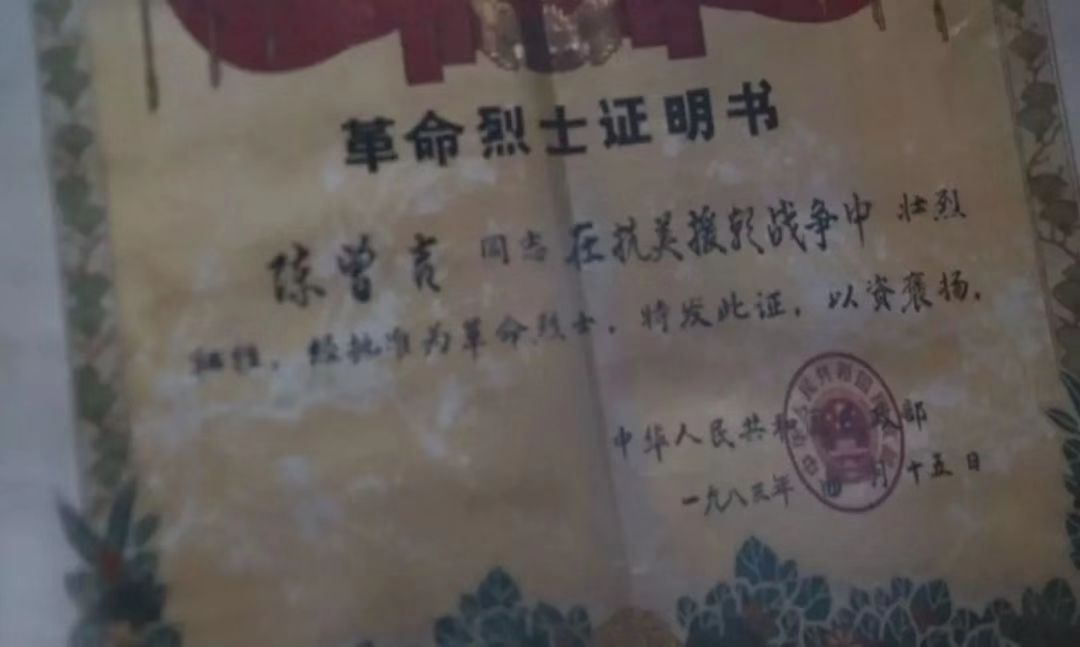 革命烈士证明书
陈曾言 同志在抗美援朝战争中 壮烈
牺牲,经批准为革命烈士,特发此证,以资褒扬。
中华人民共和 政部
一九八三年 四月十五日